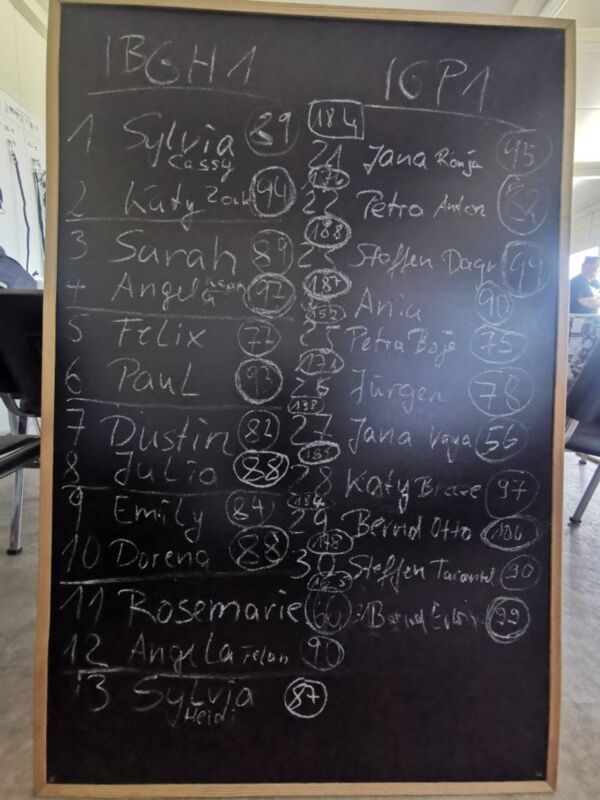 IBGH1
IGP1
184
1 Sylvia 89
Cassy
2 Katy 94
3 Sarah 89
4 Angela 92
5 Felix 72
6 Paul 93
7 Dustin 82
8 Julia 88
9 Emily 84
10 Dorena 88
11 Rosemarie 60
12 Angela 90
13 Sylvia 87
Heidi
21 Jana Ronja 95
22 Petra Anton 82
188
Steffen 94
187
Anja 90
152
25 Petra 75
171
26 Jürgen 78
27 Jana 56
185
28 Katy 97
184
29 Bernd Otto 100
178
30 Steffen 90
Bernd 99